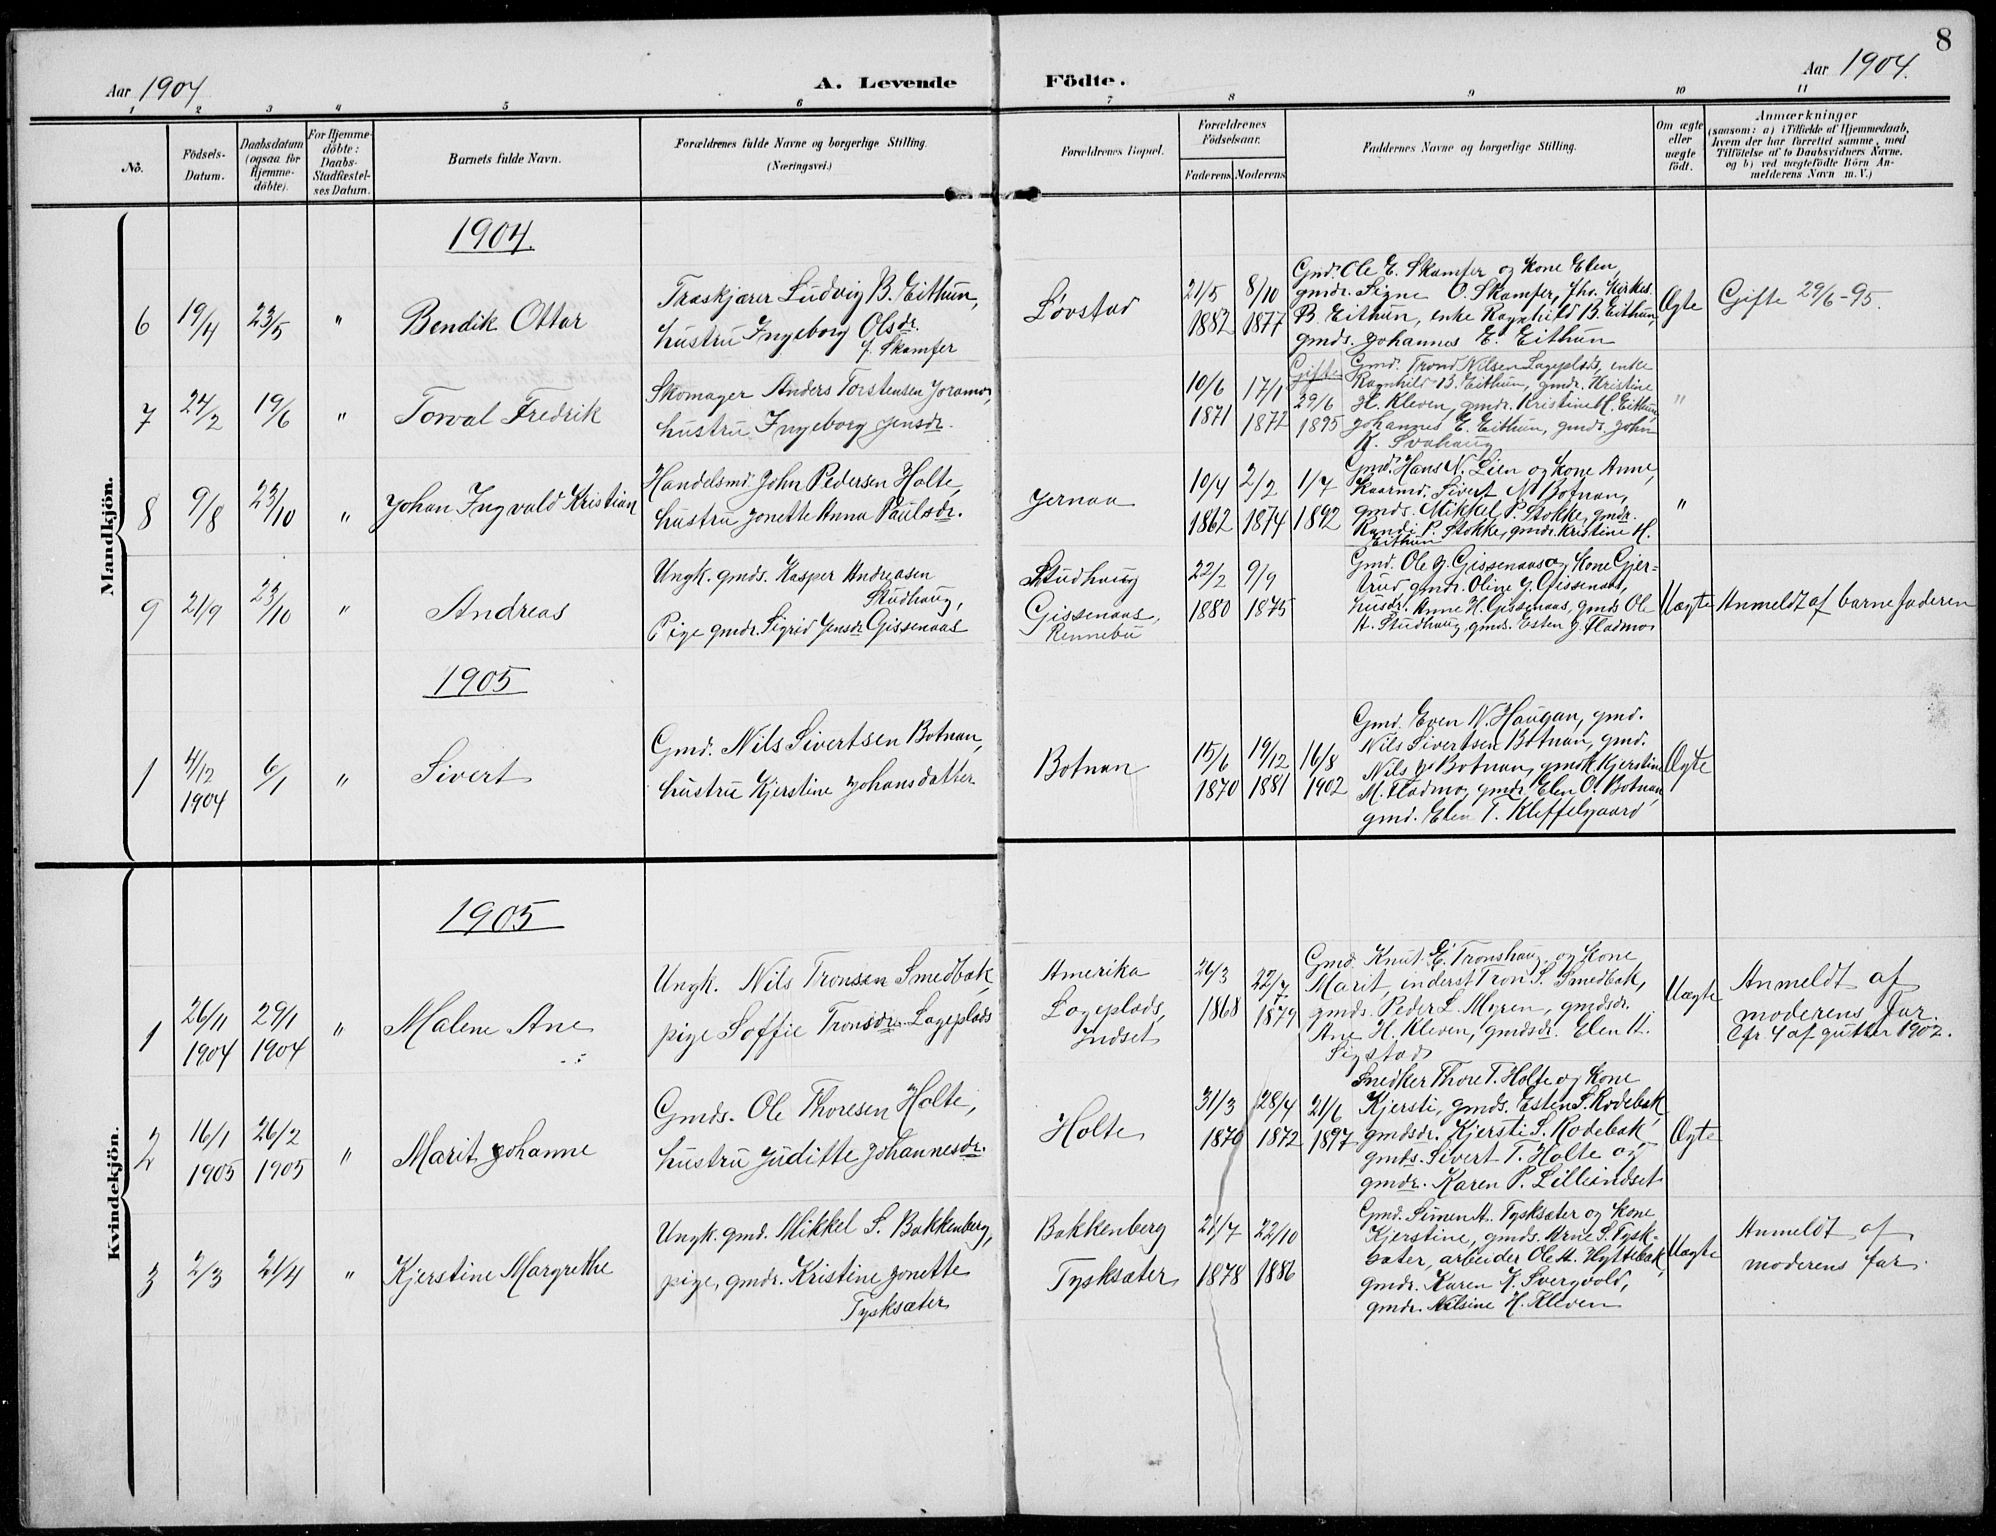 8
Aar 1904
A. Levende Födte.
Aar 1904.
1 2 3 4 5 6 7 8 9 10 11
No.
Födsels-
Datum.
Daabsdatum
(ogsaa for
Hjemme-
döbte).
For Hjemme-
döbte:
Daabs-
Stadfæstel-
ses Datum.
Barnets fulde Navn.
Forældrenes fulde Navne og borgerlige Stilling.
(Næringsvei.)
Forældrenes Bopæl.
Forældrenes
Födselsaar.
Faderens. Moderens.
Faddernes Navne og borgerlige Stilling.
Om ægte
eller
uægte
födt.
Anmærkninger
(saasom: a) i Tilfælde af Hjemmedaab,
hvem der har forrettet samme, med
Tilföielse af to Daabsvidners Navne.
og b) ved uægtefödte Börn An-
melderens Navn m. V.)
Mandkjön.
1904.
6
19/4
23/5
"
Bendik Ottar
Træskjærer Ludvig B. Eithun,
hustru Ingeborg Olsdr.
f. Skamfer
Løvstad
21/5
1882
8/10
1877
Gmd. Ole E. Skamfer og kone Elen,
gmdr. Signe O. Skamfer, fhv. kirkes.
B. Eithun, enke Ragnhild B. Eithun,
gmds. Johannes E. Eithun
Ægte
Gifte 29/6-95.
7
24/2
19/6
"
Torval Fredrik
Skomager Anders Torstensen Joramo,
hustru Ingeborg Jensdr.
10/6
1871
17/1
1872
Gifte
29/6
1895
Gmd. Trond Nilsen Lageplads, enke
Ragnhild B. Eithun, gmdr. Kristine
H. Kleven, gmdr. Kristine M. Eithun,
Johannes E. Eithun, gmds. John
K. Svahaug
"
8
9/8
23/10
"
Johan Ingvald Kristian
Handelsmd John Pedersen Holte,
hustru Jonette Anna Paulsdr.
Jernaa
10/4
1862
2/2
1874
1/7
1892
Gmd. Hans N. Lien og kone Anne,
Kaarmd. Sivert N. Botnan,
gmds. Mikkel P. Stokke, gmdr.
Randi P. Stokke, gmdr. Kristine M.
Eithun
"
9
21/9
23/10
"
Andreas
Ungk. gmds. Kasper Andreasen
Studhaug,
Pige gmdr. Sigrid Jensdr. Gissenaas
Studhaug
Gissenaas,
Rennebu
22/2
1880
9/9
1875
Gmd. Ole J. Gissenaas og kone Gjer-
trud, gmdr. Oline J. Gissenaas,
husdr. Anne H. Gissenaas, gmds. Ole
A. Studhaug, gmds. Esten J. Fladmo
Uægte
Anmeldt af barnefaderen
1905
1
4/12
1904
6/1
"
Sivert
Gmd. Nils Sivertsen Botnan,
hustru Kjerstine Johansdatter
Botnan
15/6
1870
19/12
1881
16/8
1902
Gmd. Even N. Haugan, gmd.
Nils Sivertsen Botnan, gmd.
Nils J. Botnan, gmdk. Kjerstine
M. Fladmo, gmdr. Elen O. Botnan,
gmd. Elen T. Kleffelgaard
Ægte
Kvindekjön.
1905
1
26/11
1904
29/1
1904
"
Malene Ane
Ungk. Nils Tronsen Smedbak,
pige Soffie Tronsdr. Lageplads
Amerika
Lageplads,
Indset
26/3
1868
22/7
1879
Gmd. Knut E. Tronshaug og kone
Marit, inderst Tron S. Smedbak,
gmds. Peder L. Myren, gmdsdr.
Ane H. Kleven, gmdsdr. Elen H.
Sigstad
Uægte
Anmeldt af
moderens far.
Cfr. 4 af gutter 1902.
2
16/1
1905
26/2
1905
"
Marit Johanne
Gmds. Ole Thoresen Holte,
hustru Juditte Johannesdr.
Holte
31/3
1870
28/4
1872
21/6
1897
Snedker Thore T. Holte og kone
Kjersti, gmds. Esten S. Rodebak,
gmdsdr. Kjersti S. Rodebak,
gmds. Sivert T. Holte og
gmdr. Karen P. Lilleindset
Ægte
3
2/3
2/4
"
Kjerstine Margrethe
Ungk. gmd. Mikkel S. Bakkenberg,
pige, gmdr. Kristine Jonette
Tysksæter
Bakkenberg
Tysksæter
21/7
1878
22/10
1886
Gmd. Simen A. Tysksæter og kone
Kjerstine, gmds. Arne S. Tysk-
sæter, arbeider Ole H. Hyttebak,
gmdr. Karen K. Svergvold,
gmdr. Nilsine H. Kleven
Uægte
Anmeldt af
moderens far.